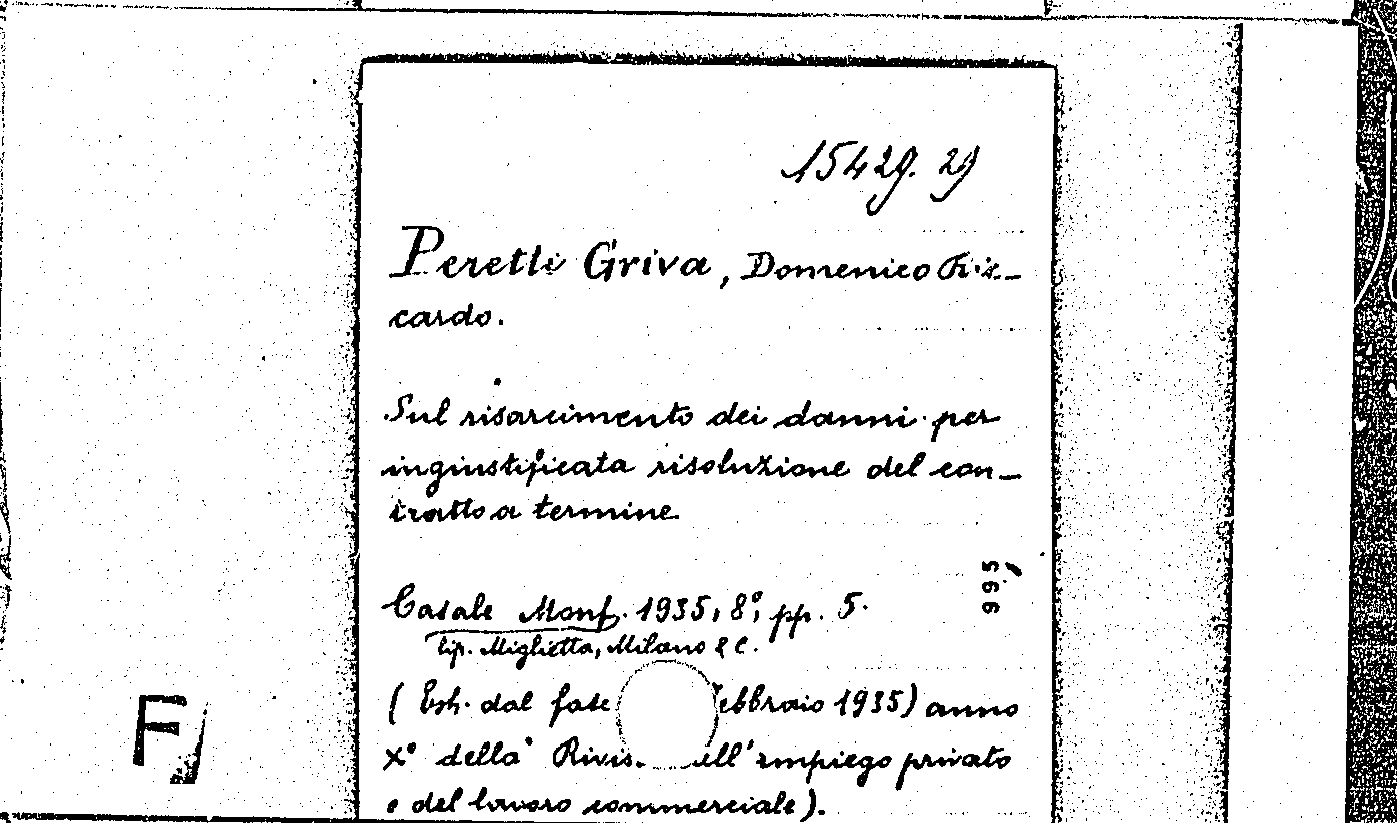 15429.29
Peretti Griva, Domenico Ric-
cardo.
Sul risarcimento dei danni per
ingiustificata risoluzione del con-
tratto a termine
995
Casale Monf. 1935, 8°, pp. 5.
tip. Miglietta, Milano & C.
( Estr. dal fasc ebbraio 1935) anno
X° della Rivis. ell'impiego privato
e del lavoro commerciale).
F